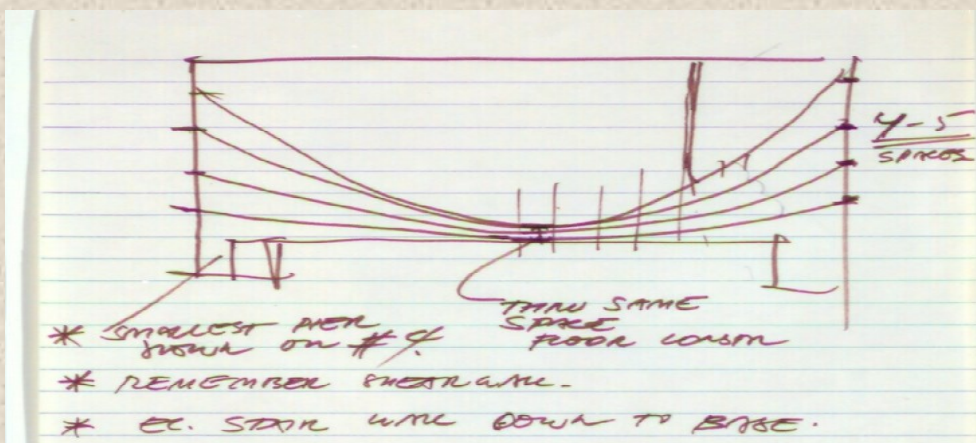 4-5
SPACES
THRU SAME
SPACE
FLOOR CONSTR
* SMALLEST PIER
DOWN ON #4.
* REMEMBER SHEARWALL.
* EC. STAIR WALL DOWN TO BASE.